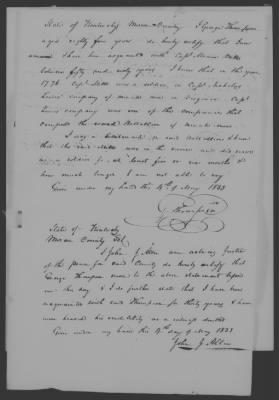 State of Kentucky Mercer County I George Thompson
aged eighty four years do hereby certify that I am
and have been acquainted with Capt
between fifty and sixty years. I know that in the year
1776 Capt was a soldier in Capt Nicholas
Lewis' company of minute men in Virginia Capt
Lewis company was one of the companies that
composed the second Battallion of minute men
I was a in said Battallion I know
that the said was in the service and did serve
as a soldier for at least five or six months &
how much longer I am not able to say
Given under my hand this 14th of May 1833
G Thompson
State of Kentucky
Mercer County Sct
I John J Allin an acting Justice
of the peace for said County do hereby certify that
George Thompson swore to the above statement before
me this day & I do further state that I have been
acquainted with said Thompson for thirty years & have
never heard his credibility as a witness doubted
Given under my hand this 14th day of May 1833
John J. Allin